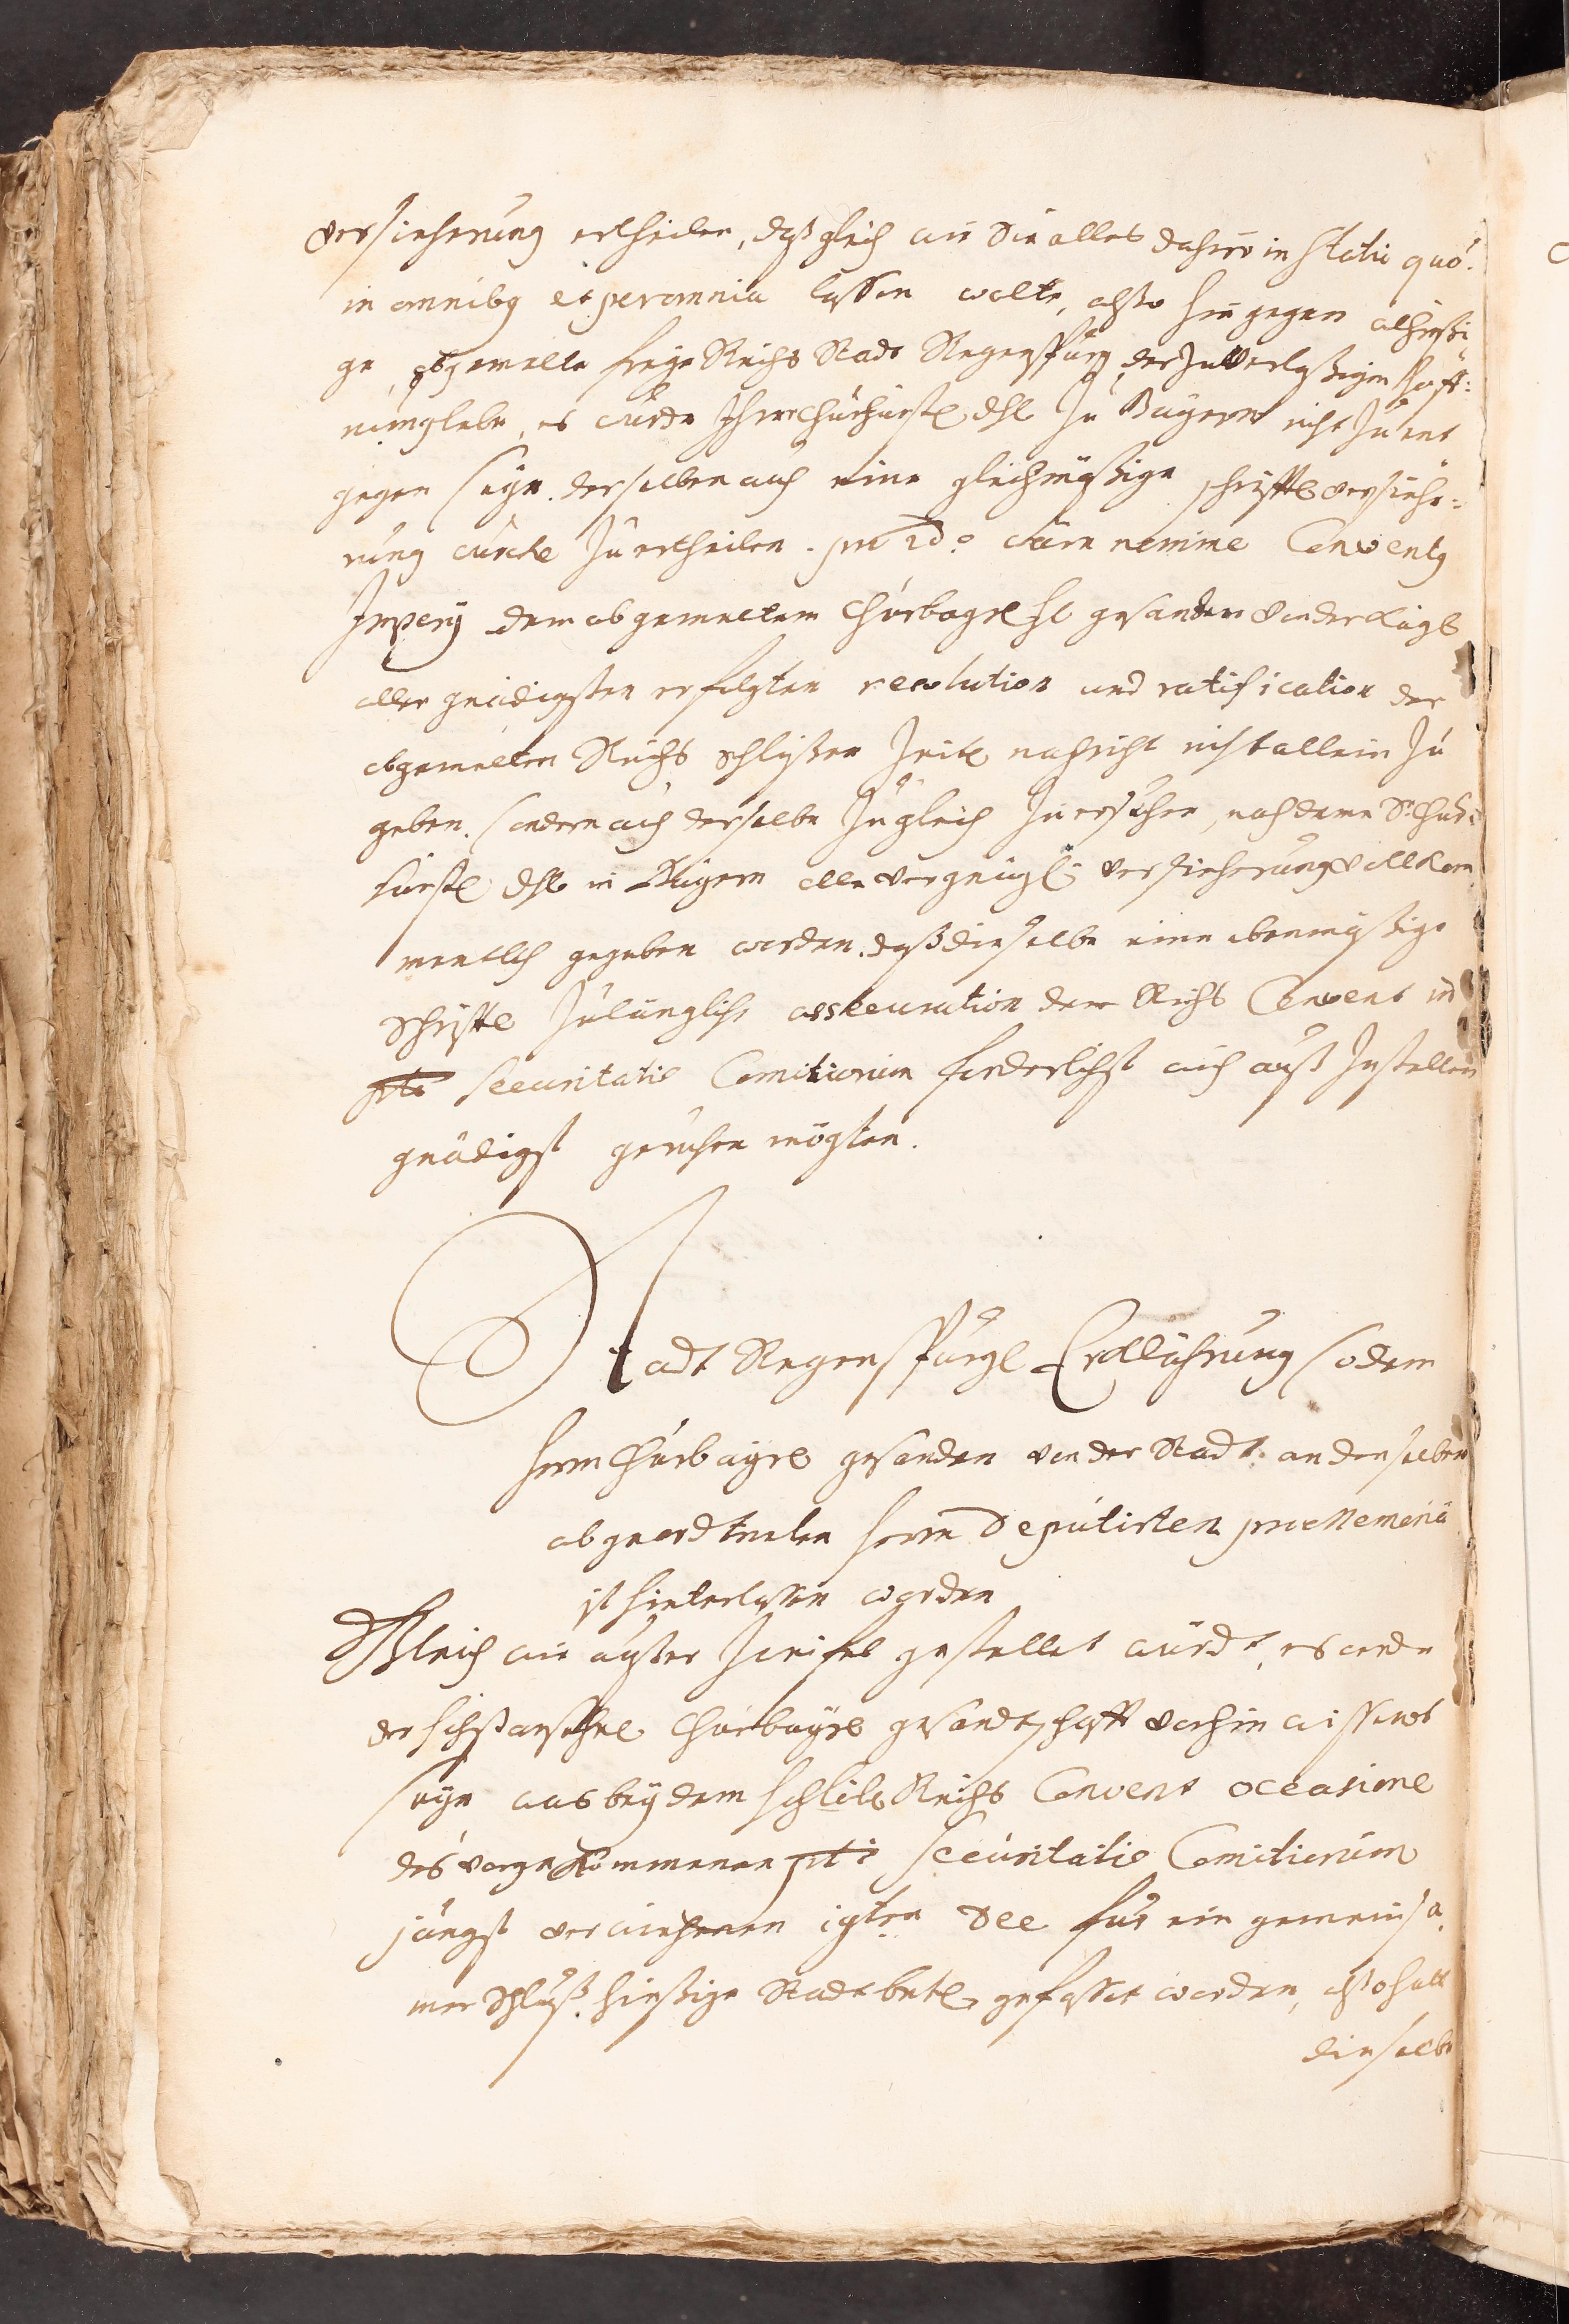 versicherung ertheilen, daß gleich wie Sie alles dahier in Statu quo.
in omnibg et per omnia lassen wolte, also hingegen alhießi
ge, obgemelte freye Reichs Stadt Regenspurg der Zuverläßigen hoff=
nung lebe, es würde Ihrer Churfürstl dhl Zu Bayern nicht Zu ent
gegen seyn. derselben auch eine gleichmäßige schrifftl versiche=
rung Zu ertheilen. pro 2do wäre nomine Conventg
Imperij dem obgemeltem Churbayrl H gesanden von der Kayl
aller gnädigsten erfolgten resolution und ratification der
obgemelten Reichs schlüßen Zeitl nachricht nicht allein Zu
geben. sondern auch derselbe Zugleich Zu ersuchen, nachdeme Sr Chur
fürstl dhl in Bayern alle vergnügl versicherung vollkom
mentlich gegeben worden. daß dieselbe eine ebenmäßige
Schrifftl Zulängliche assecuration dem Reichs Convent in
pto securitatis Comitiorum forderlichst auch auß Zustellen
gnädigst geruhen mögten.
Stadt Regenspurgl Erklährung so dem
herrn Churbayrl gesanden von der Stadt an denselben
abgeordtneten herrn Deputirten pro Memoria
ist hinterlassen worden
Gleich wie außer Zweifel gestellet würdt, es werde
der hochansehnl Churbayrl gesandtschafft vorhin wissend
seyn was bey dem hochlöbl Reichs Convent occasione
des vorgekommenen pti securitatis Comitiorum
jüngst verwichenen 19ten Dec für ein gemeinsa
mer Schluß hießige Stadt betl gefasset worden, also hatt
dieselbe